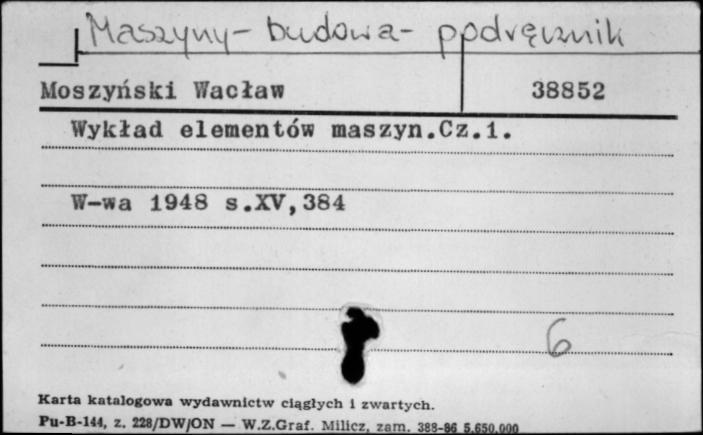 Maszyny - budowa - podręcznik
Moszyński Wacław 38852
Wykład elementów maszyn.Cz.1.
W-wa 1948 s.XV,384
6
Karta katalogowa wydawnictw ciągłych i zwartych.
Pu-B-144, z. 228/DW/ON — W.Z.Graf. Milicz, zam. 388-86 5.650.000